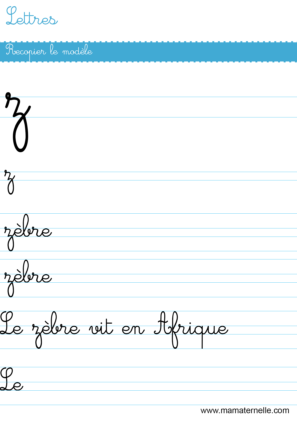 Lettres
Recopier le modèle
z
z
zèbre
zèbre
Le zèbre vit en Afrique
Le
www.mamaternelle.com